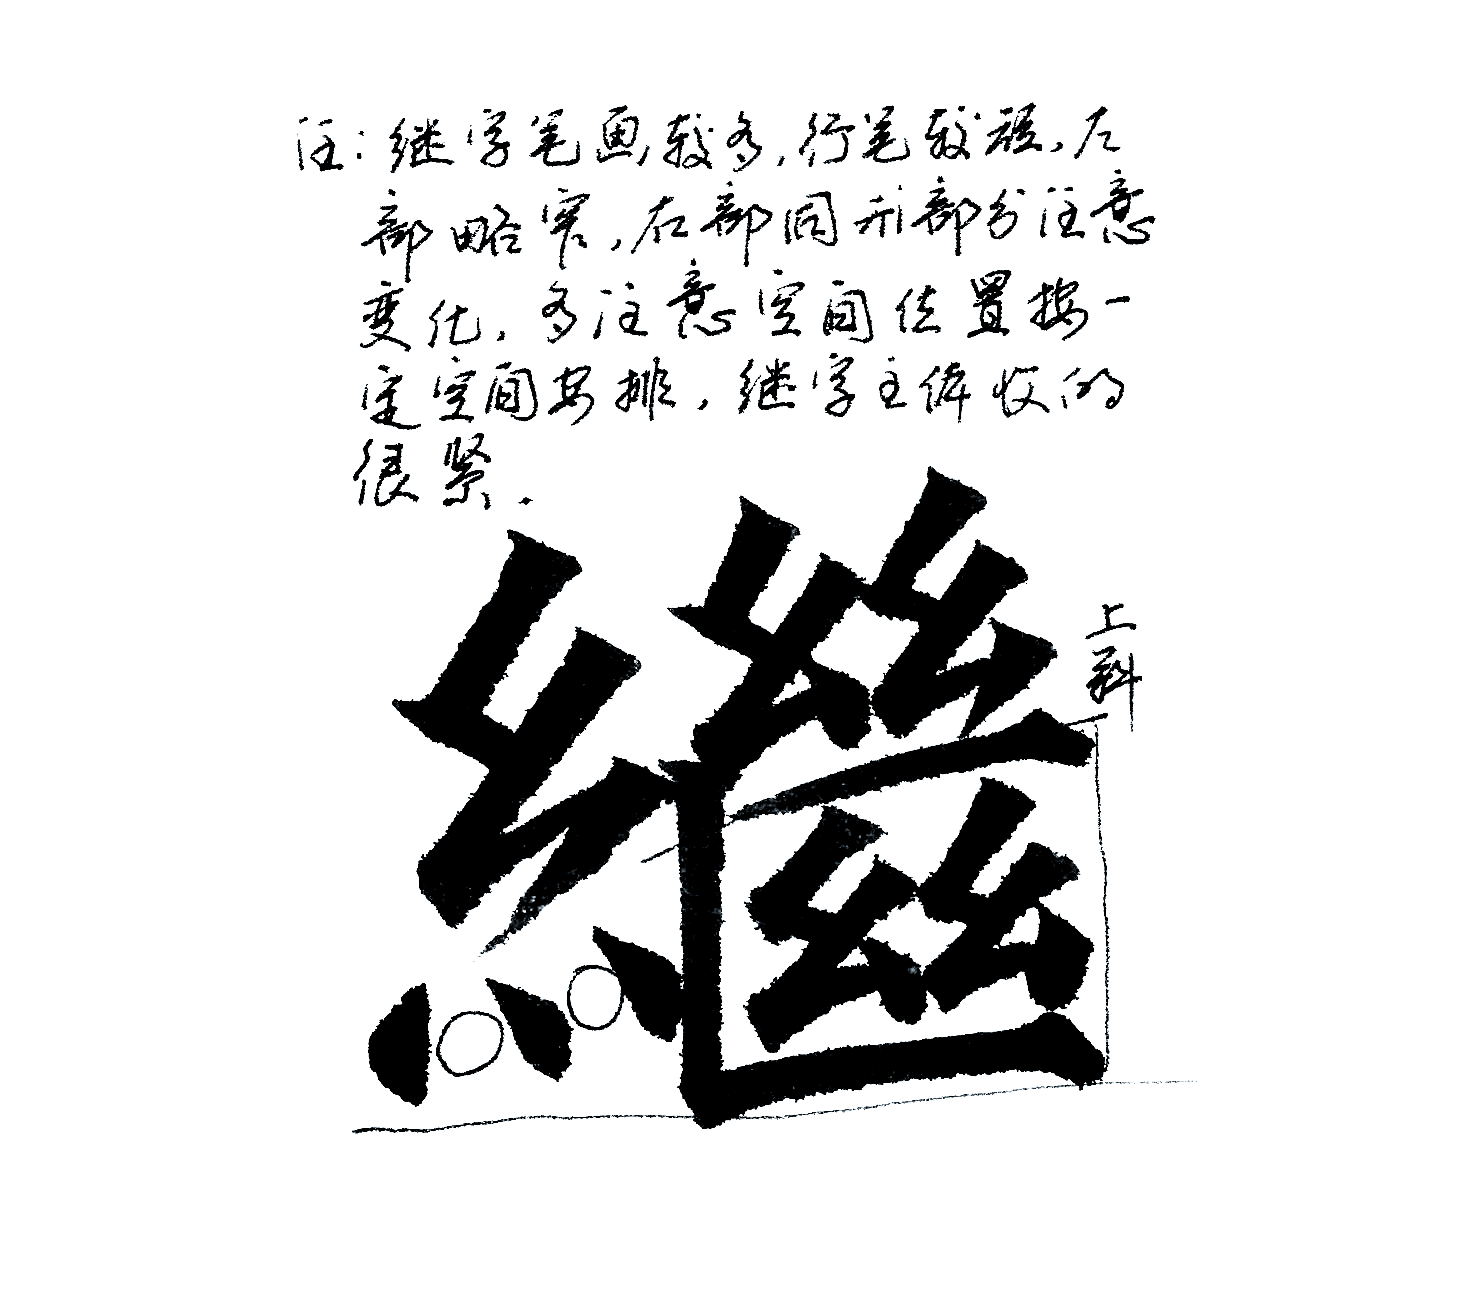 注：继字笔画较多，行笔较短，左
部略窄，右部同形部分注意
变化，多注意空间位置按一
定空间安排，继字主体收的
很紧．
繼
上斜